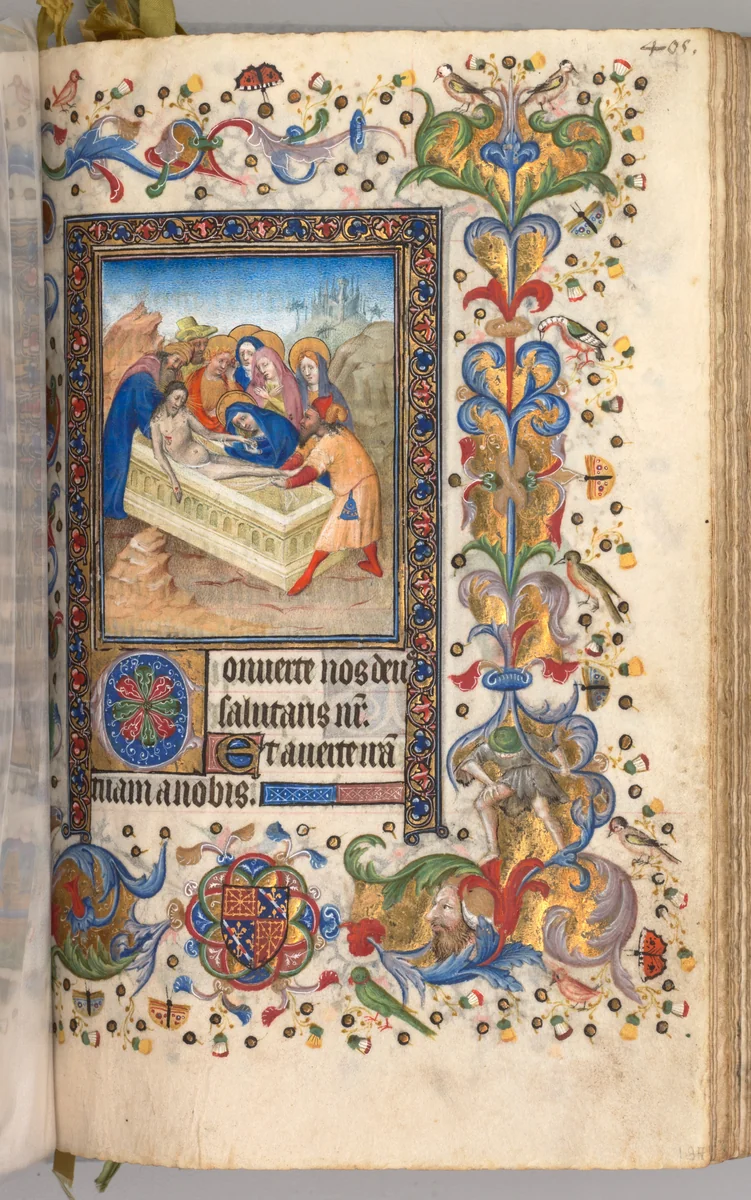 405.
Conuerte nos deus
salutaris nr̄.
Et auerte irā
tuam a nobis.